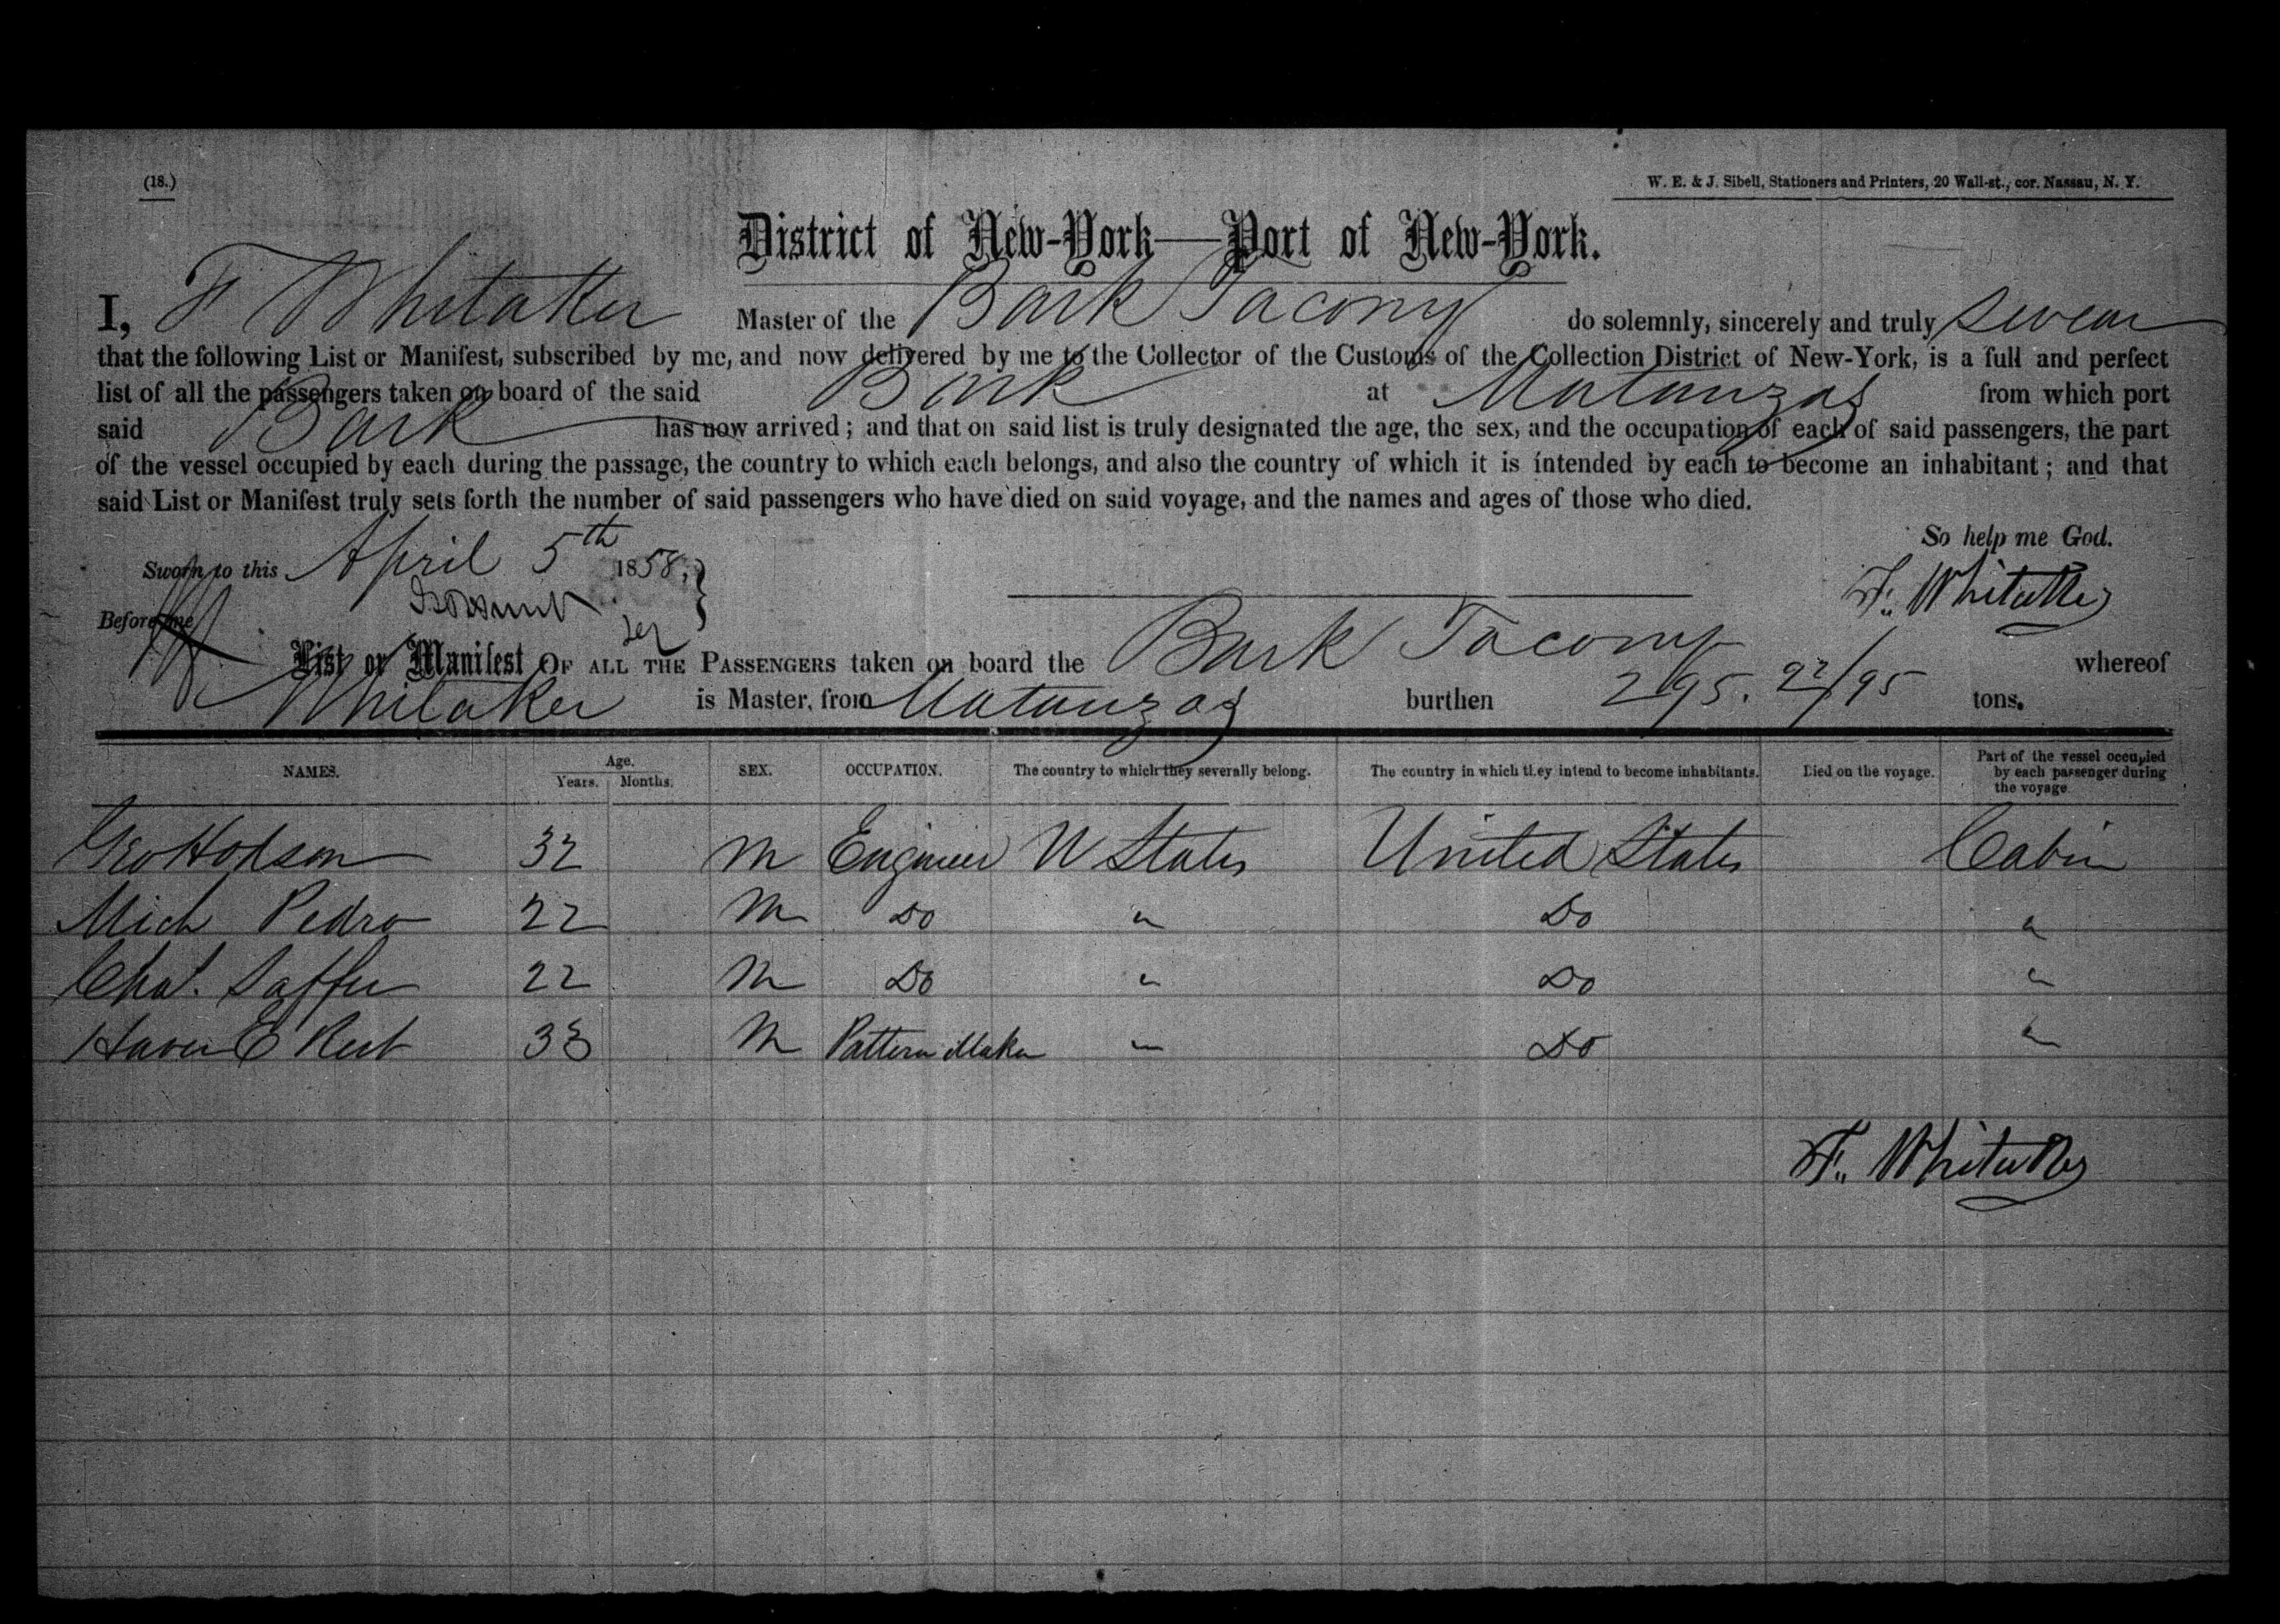 (18.)
W. E. & J. Sibell, Stationers and Printers, 20 Wall-st., cor. Nassau, N. Y.
District of New-York—Port of New-York.
I, F Whitaker Master of the Bark Tacony do solemnly, sincerely and truly swear
that the following List or Manifest, subscribed by me, and now delivered by me to the Collector of the Customs of the Collection District of New-York, is a full and perfect
list of all the passengers taken on board of the said Bark at Matanzas from which port
said Bark has now arrived; and that on said list is truly designated the age, the sex, and the occupation of each of said passengers, the part
of the vessel occupied by each during the passage, the country to which each belongs, and also the country of which it is intended by each to become an inhabitant; and that
said List or Manifest truly sets forth the number of said passengers who have died on said voyage, and the names and ages of those who died.
So help me God.
Sworn to this April 5th 1858,
F. Whitaker
Before me
List or Manifest OF ALL THE PASSENGERS taken on board the Bark Tacony whereof
Whitaker is Master, from Matanzas burthen 295. 22/95 tons.
NAMES. Age. Years. Months. SEX. OCCUPATION. The country to which they severally belong. The country in which they intend to become inhabitants. Died on the voyage. Part of the vessel occupied by each passenger during the voyage.
Geo Hodson 32 M Engineer U States United States Cabin
Mich Pedro 22 M Do " Do "
Chas. 22 M Do " Do "
E 33 M Pattern Maker " Do "
F. Whitaker